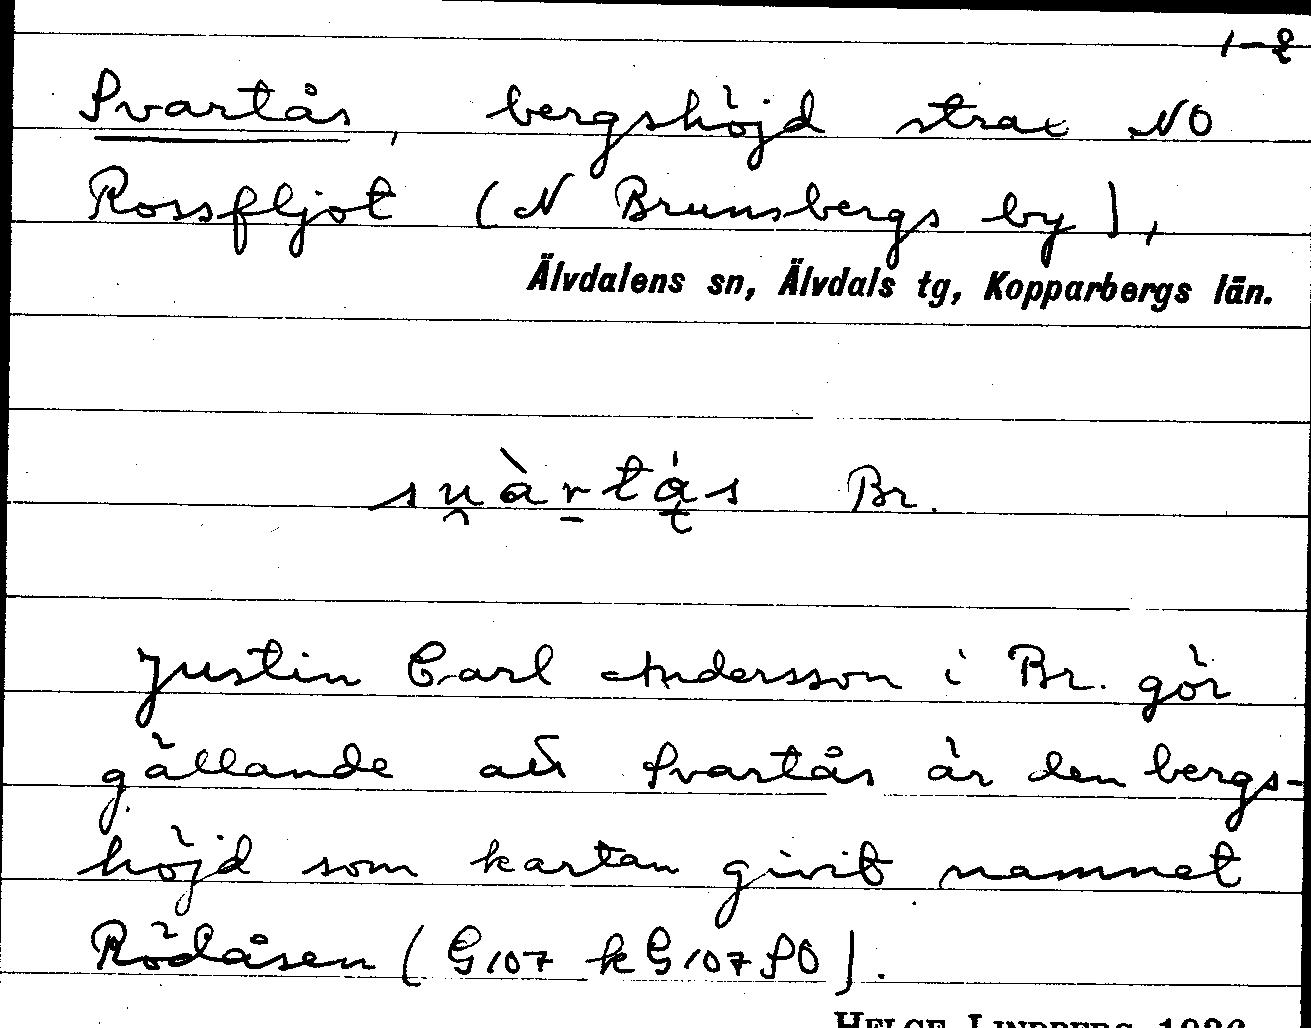 1-2
Svartås, bergshöjd strax NO
Rossfljot (N Brunsbergs by),
Älvdalens sn, Älvdals tg, Kopparbergs län.
Br.
Justin Carl Andersson i Br. gör
gällande att Svartås är den bergs-
höjd som kartan givit namnet
Rödåsen (G107 k G107 SO).
HELGE LINDBERG 1936